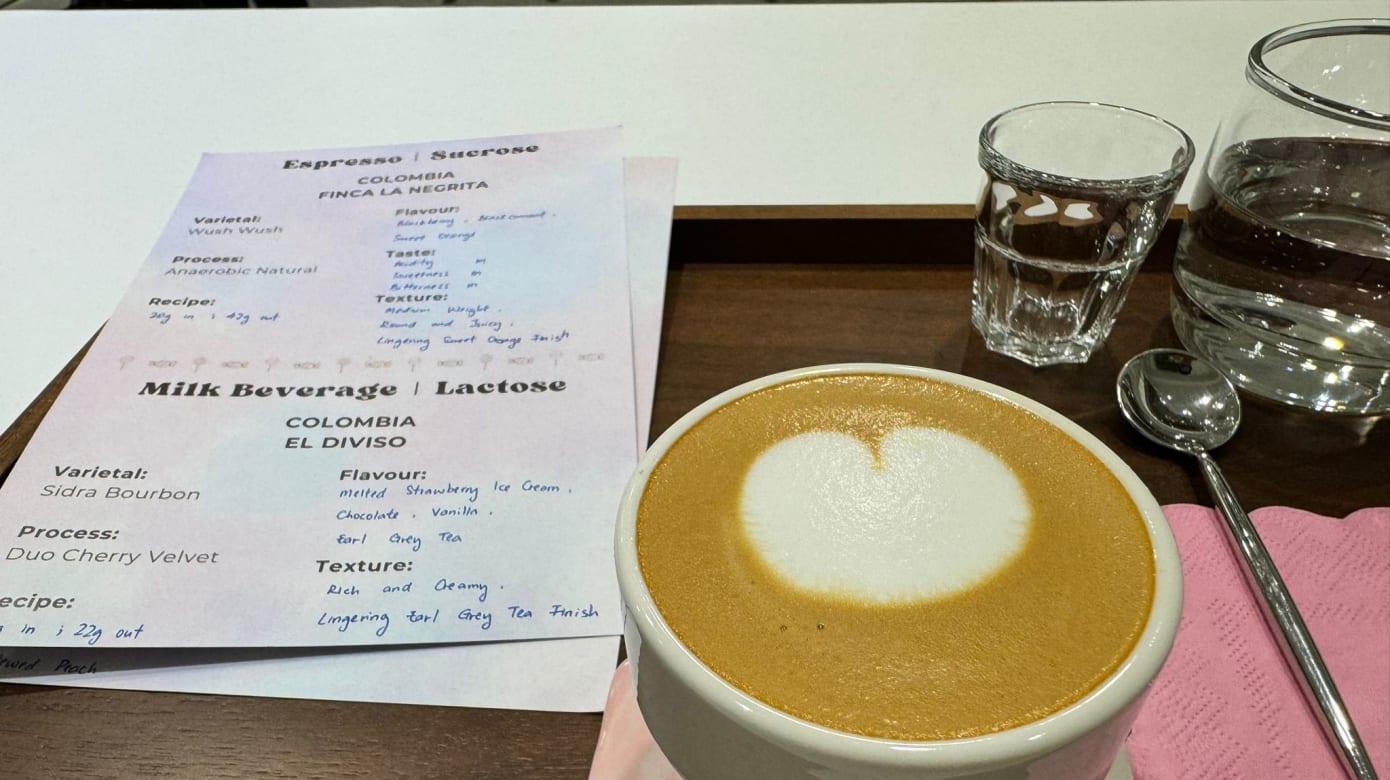 Espresso | Sucrose
COLOMBIA
FINCA LA NEGRITA
Varietal:
Wush Wush
Process:
Anaerobic Natural
Recipe:
20g in ; 42g out
Flavour:
Blackberry , Blackcurrant ,
Sweet Orange
Taste:
Acidity m
Sweetness m
Bitterness m
Texture:
Medium Weight ,
Round and Juicy ,
Lingering Sweet Orange Finish
Milk Beverage | Lactose
COLOMBIA
EL DIVISO
Varietal:
Sidra Bourbon
Process:
Duo Cherry Velvet
ecipe:
in ; 22g out
Flavour:
Melted Strawberry Ice Cream ,
Chocolate , Vanilla ,
Earl Grey Tea
Texture:
Rich and Creamy ,
Lingering Earl Grey Tea Finish
Peach